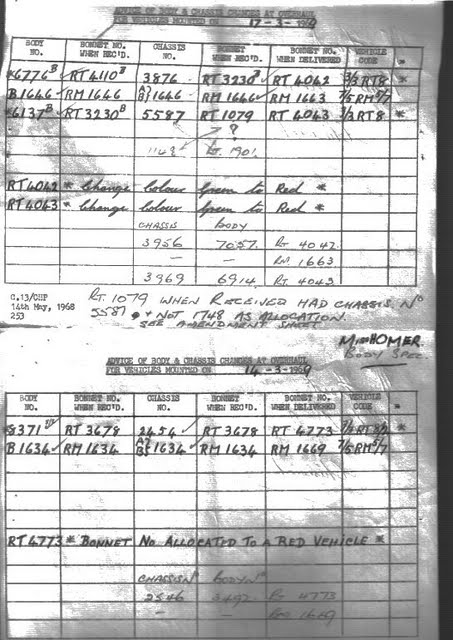 ADVICE OF BODY & CHASSIS CHANGES AT OVERHAUL
FOR VEHICLES MOUNTED ON 17-3-1969
BODY NO. BONNET NO. WHEN REC'D. CHASSIS NO. BONNET WHEN REC'D. BONNET NO. WHEN DELIVERED VEHICLE CODE *
6776 B RT 4110 B 3876 RT 3230 B RT 4042 3/2 RT8 *
B1646 RM 1646 1646 RM 1646 RM 1663 7/5 RM 5/7
6137 B RT 3230 B 5587 RT 1079 RT 4043 3/2 RT8 *
?
RT. 1901.
RT 4042 * Change Colour Green to Red *
RT 4043 * Change Colour Green to Red *
CHASSIS BODY
3956 7057. RT 4042.
– – RM. 1663
3969 6914. RT. 4043
C.13/CHP
14th May, 1968
253
RT. 1079 WHEN RECEIVED HAD CHASSIS No
5587 & NOT 1748 AS ALLOCATION.
SEE AMENDMENT SHEET
HOMER.
BODY SPEC.
ADVICE OF BODY & CHASSIS CHANGES AT OVERHAUL
FOR VEHICLES MOUNTED ON 14-3-1969
BODY NO. BONNET NO. WHEN REC'D. CHASSIS NO. BONNET WHEN REC'D. BONNET NO. WHEN DELIVERED VEHICLE CODE *
RT 3678 2454 RT 3678 RT 4773 *
B 1634 RM 1634 1634 RM 1634 RM 1669 7/5 RM 5/7
RT 4773 * BONNET No ALLOCATED TO A RED VEHICLE *
CHASSIS No BODY No
2546 3492 RT 4773
– –